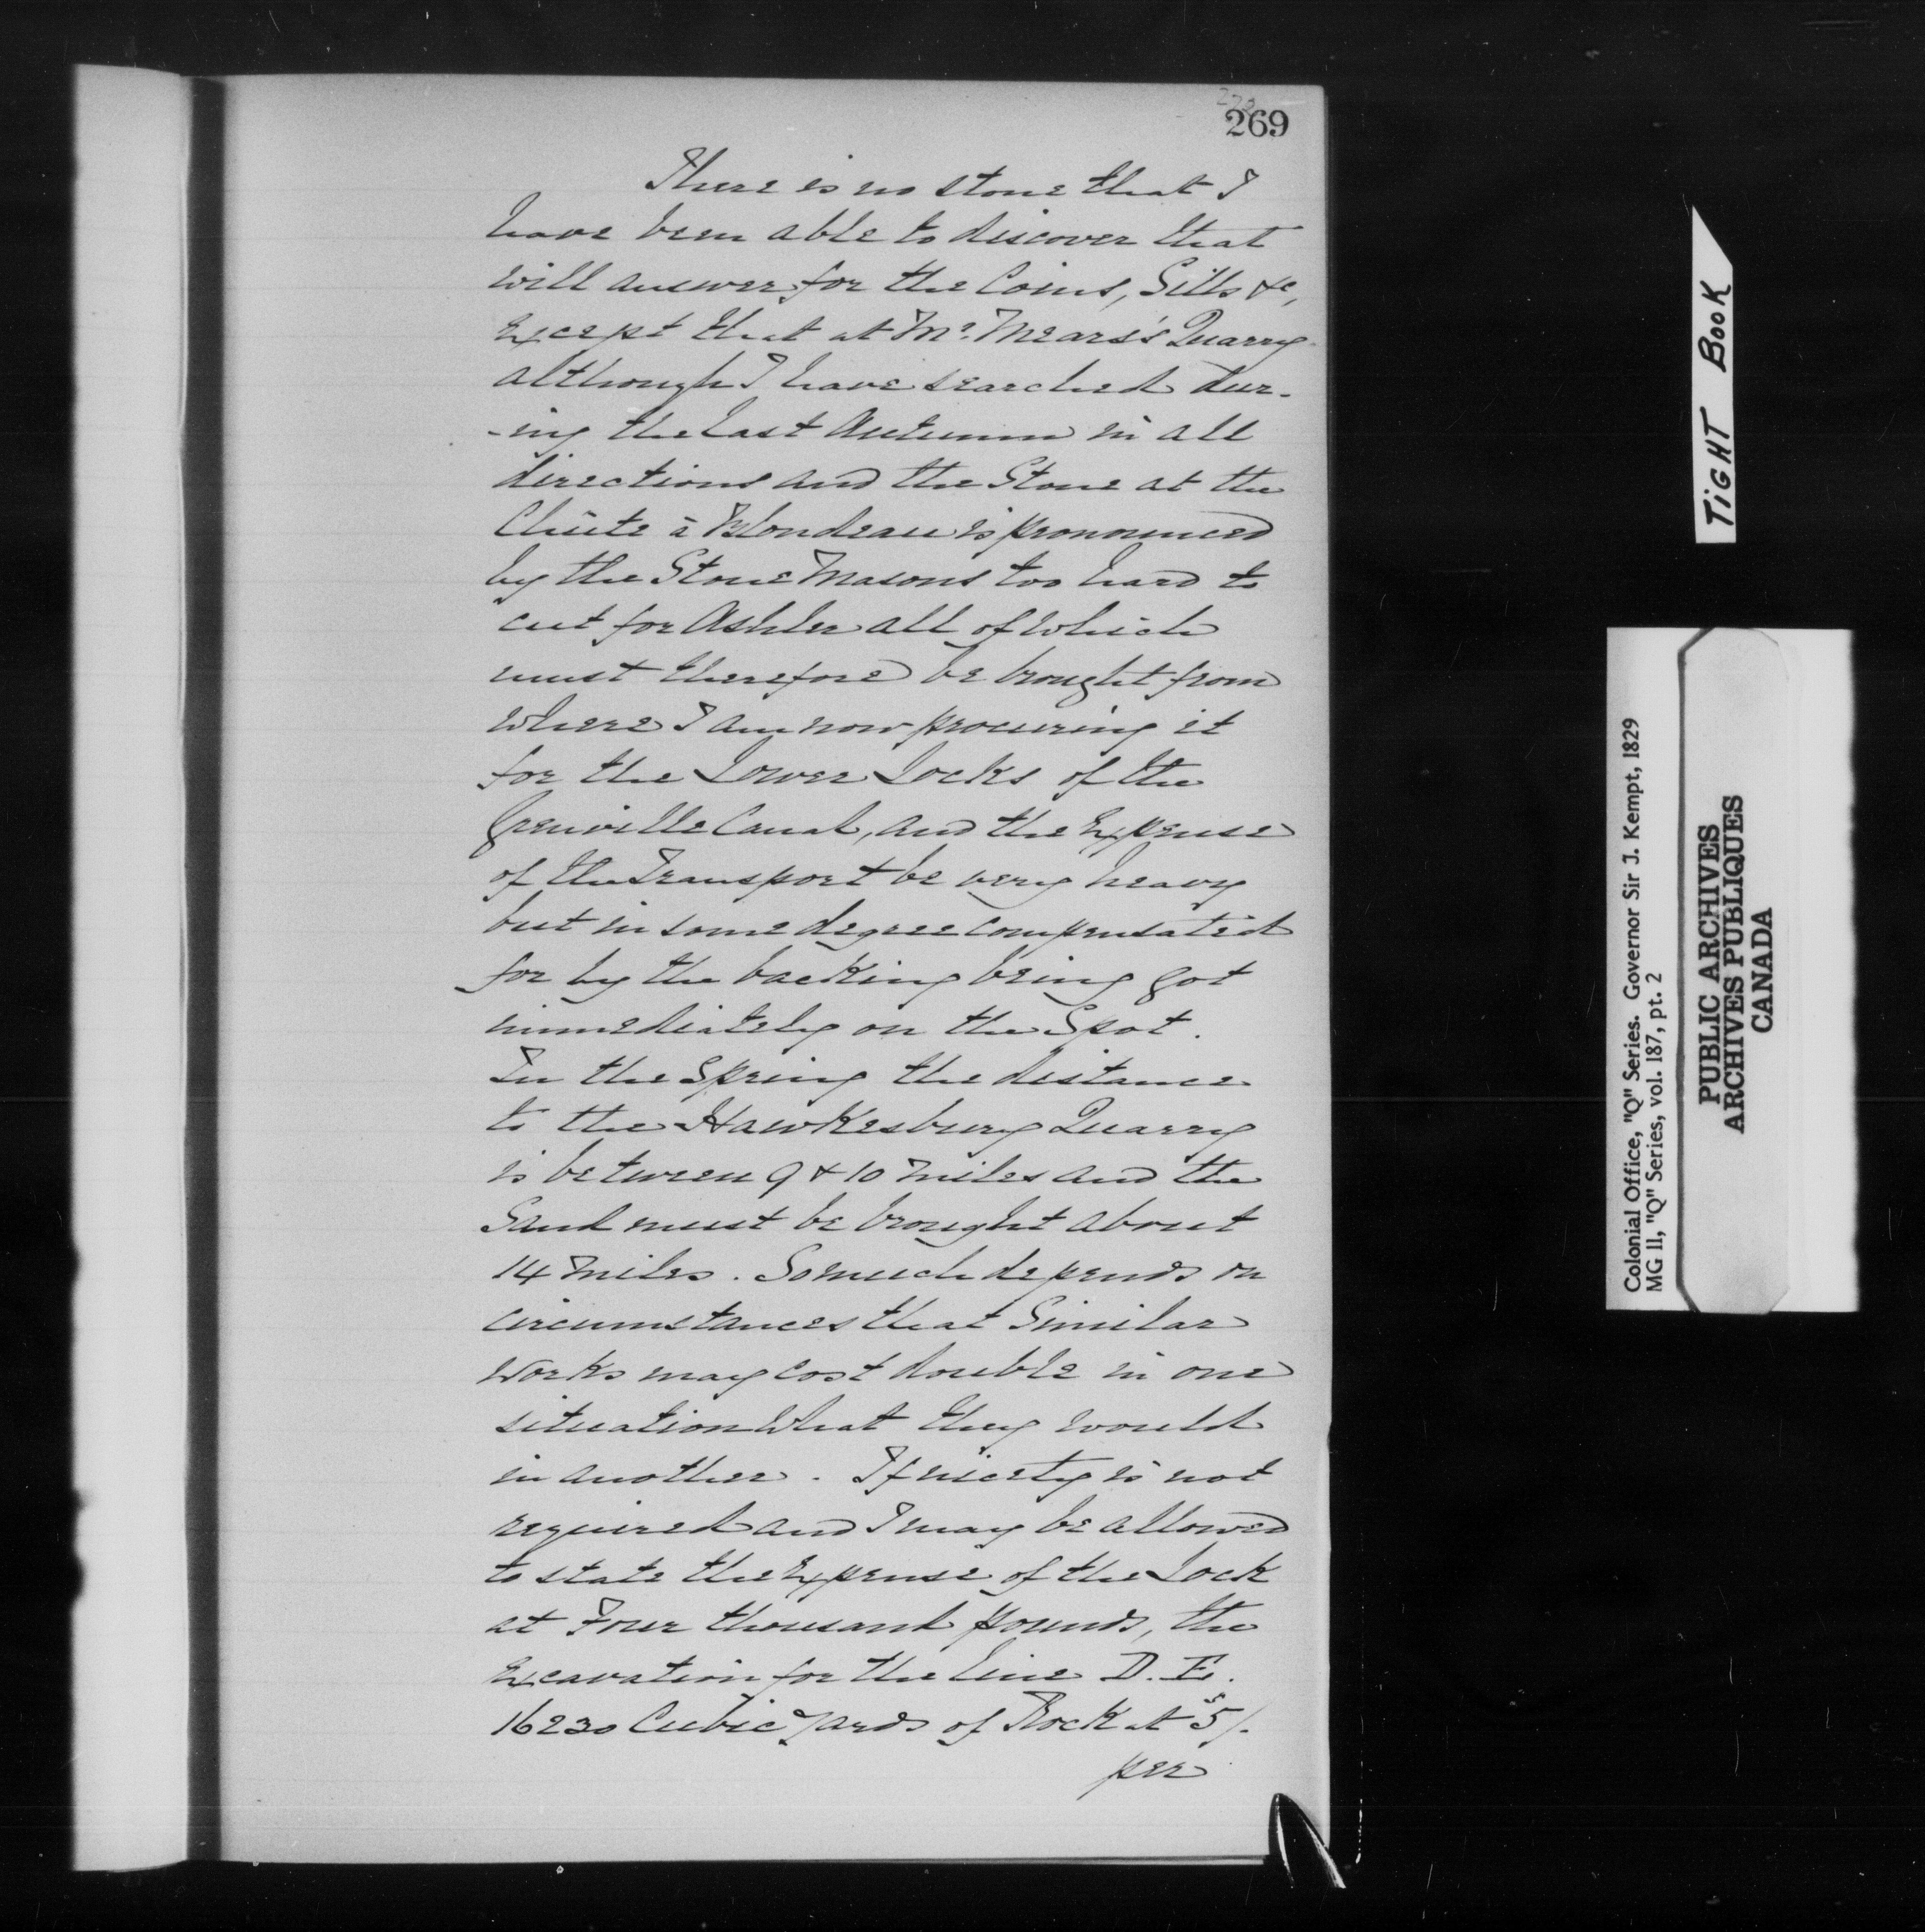 269
There is no stone that I
have been able to discover that
will answer for the Coins, Sills &c,
Except that at Mr. Mears's Quarry
although I have searched dur-
-ing the last Autumn in all
directions and the Stone at the
Chûte à Blondeau is pronounced
by the Stone Masons too hard to
cut for Ashler all of which
must therefore be brought from
where I am now procuring it
for the Lower Locks of the
Grenville Canal, and the Expense
of the Transport be very heavy
but in some degree compensated
for by the backing being got
immediately on the Spot.
In the Spring the distance
to the Hawkesbury Quarry
is between 9 & 10 Miles and the
Sand must be brought about
14 Miles. So much depends on
circumstances that Similar
Works may cost double in one
situation What they would
in another. If nicety is not
required and I may be allowed
to state the Expense of the Lock
at Four thousand pounds, the
Excavation for the line D. E.
16230 Cubic Yards of Rock at 5s/.
per
TIGHT BOOK
Colonial Office, "Q" Series. Governor Sir J. Kempt, 1829
MG 11, "Q" Series, vol. 187, pt. 2
PUBLIC ARCHIVES
ARCHIVES PUBLIQUES
CANADA